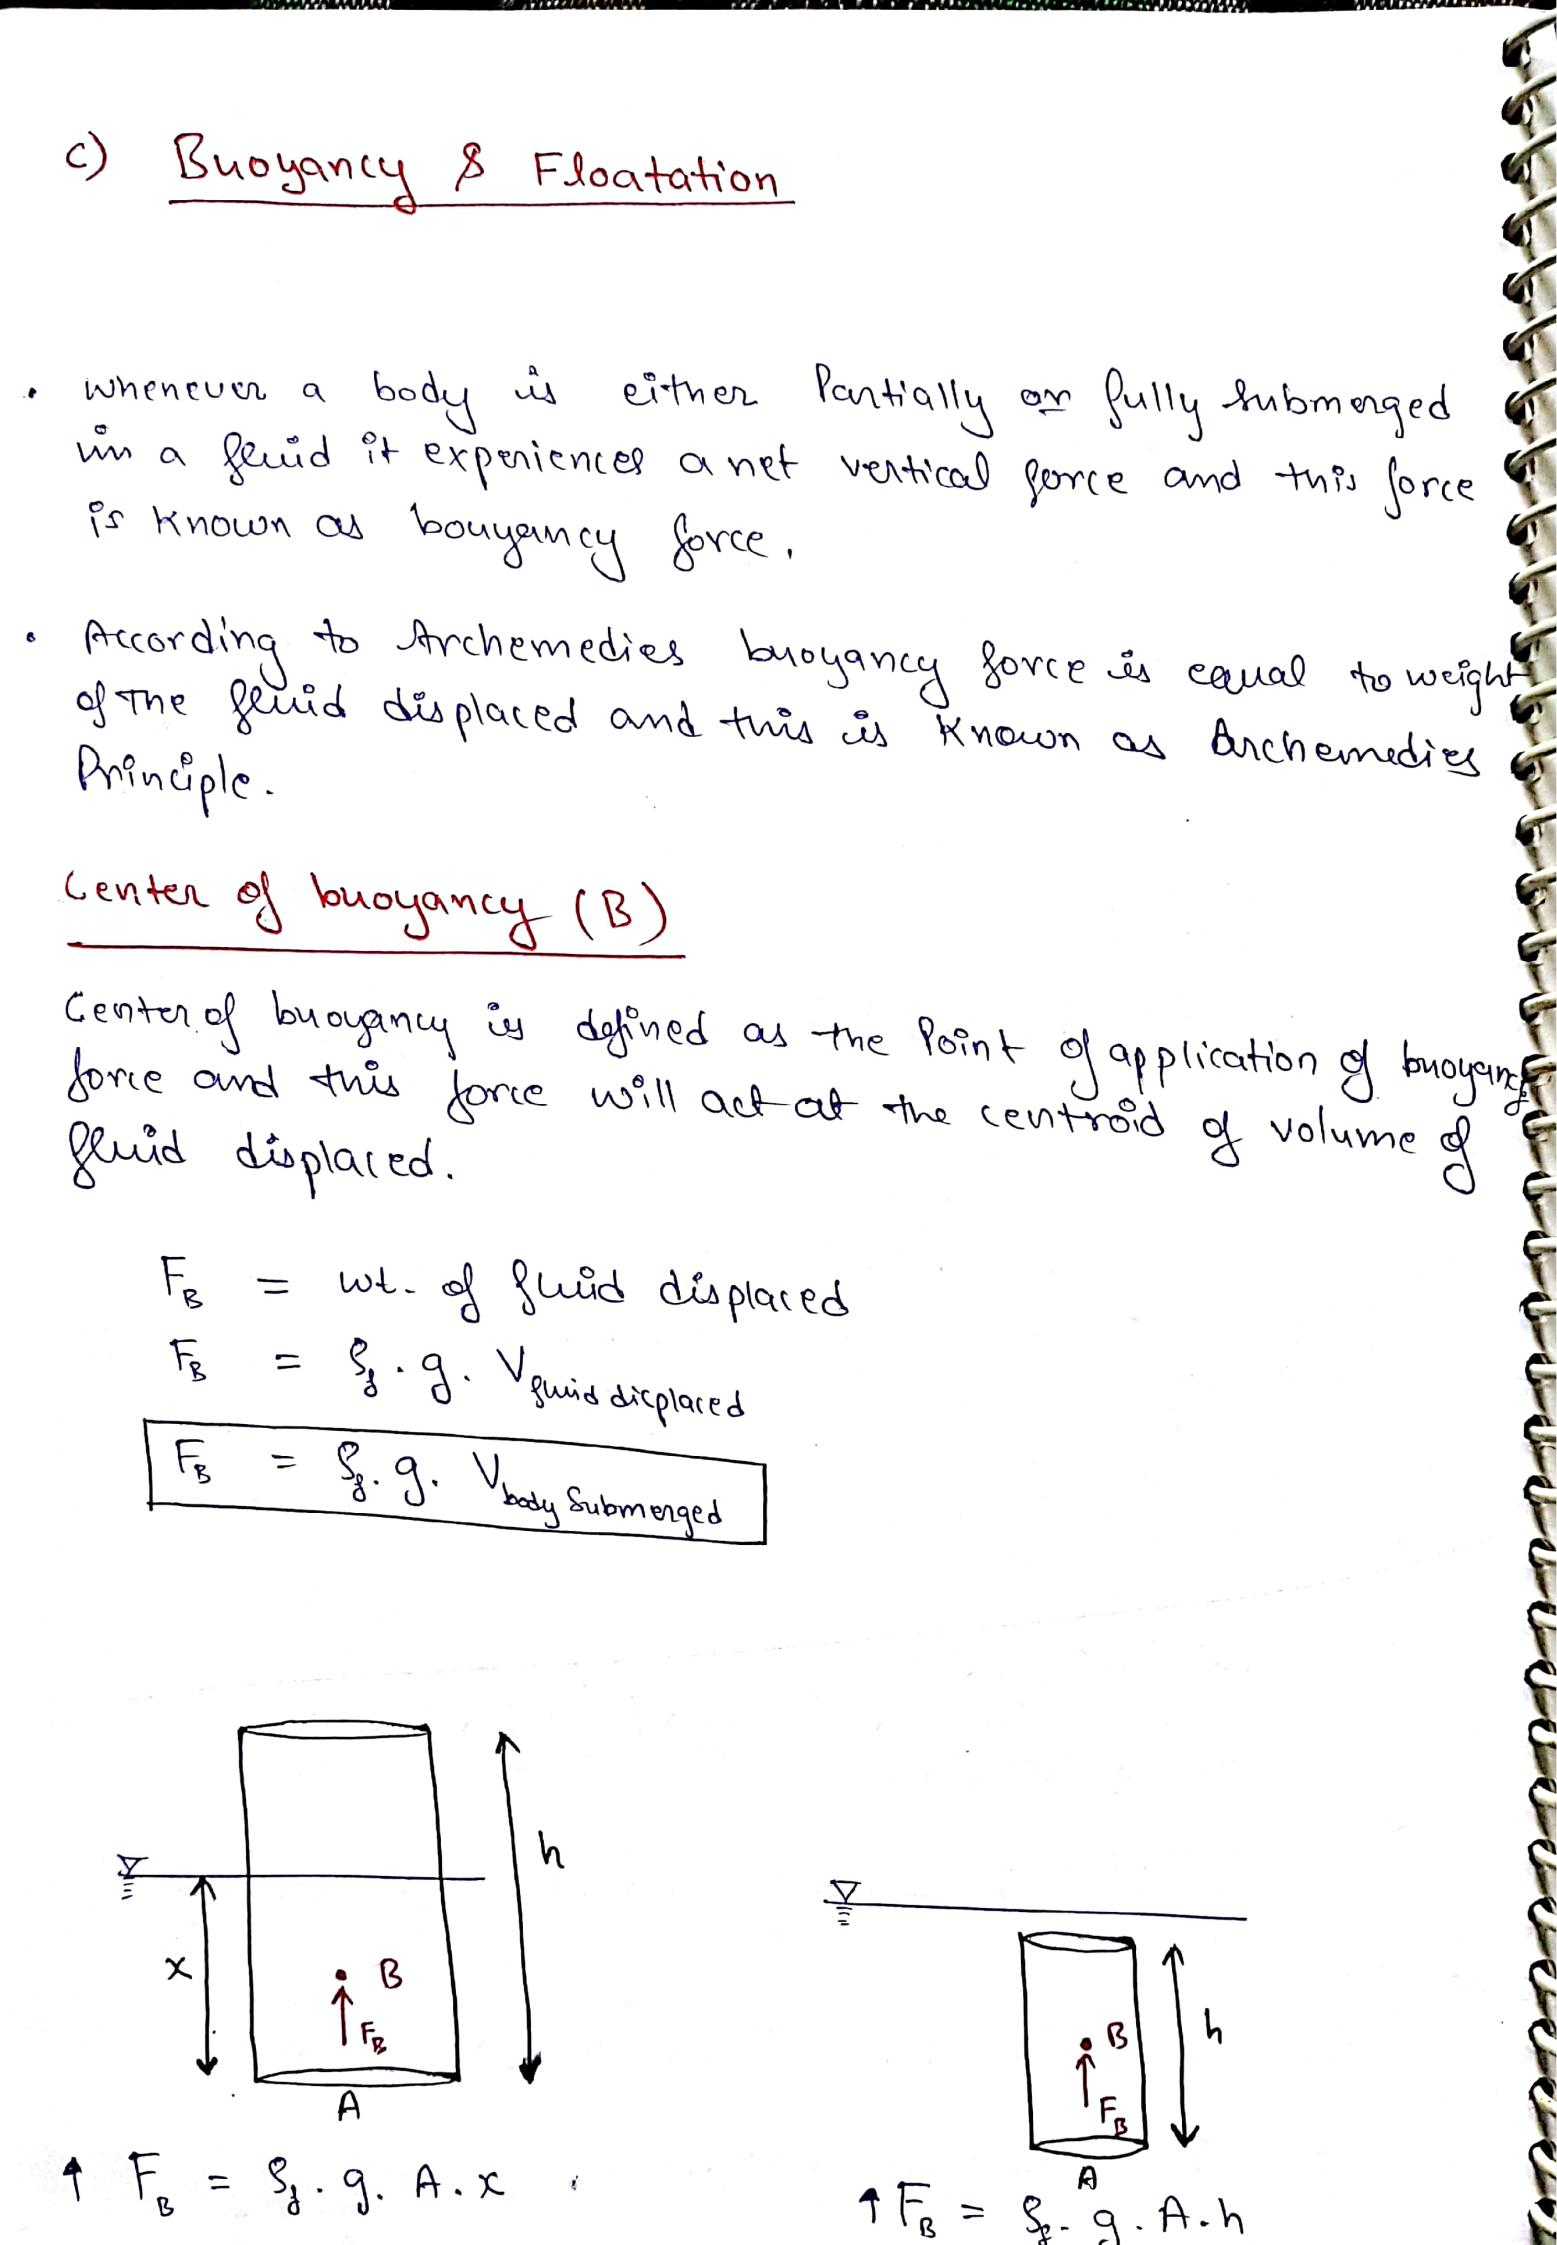 c) Buoyancy & Floatation
• whenever a body is either Partially or fully submerged
in a fluid it experiences a net vertical force and this force
is known as bouyancy force.
• According to Archemedies buoyancy force is equal to weight
of the fluid displaced and this is known as Archemedies
Principle.
Center of buoyancy (B)
Center of buoyancy is defined as the Point of application of buoyancy
force and this force will act at the centroid of volume of
fluid displaced.
F_B = wt. of fluid displaced
F_B = ρ_f . g . V_fluid dicplaced
F_B = ρ_f . g . V_body Submerged
h
x
B
F_B
A
↑ F_B = ρ_f . g . A . x
h
B
F_B
A
↑ F_B = ρ_f . g . A . h